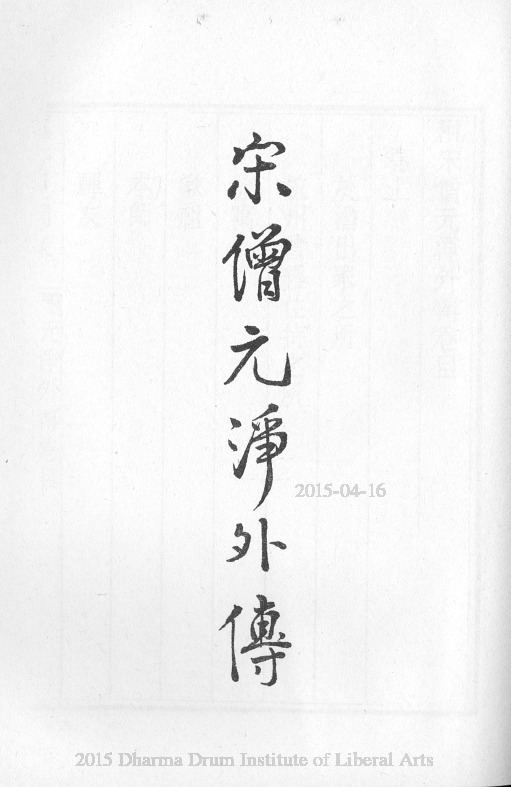 宋僧元淨外傳
2015-04-16
2015 Dharma Drum Institute of Liberal Arts